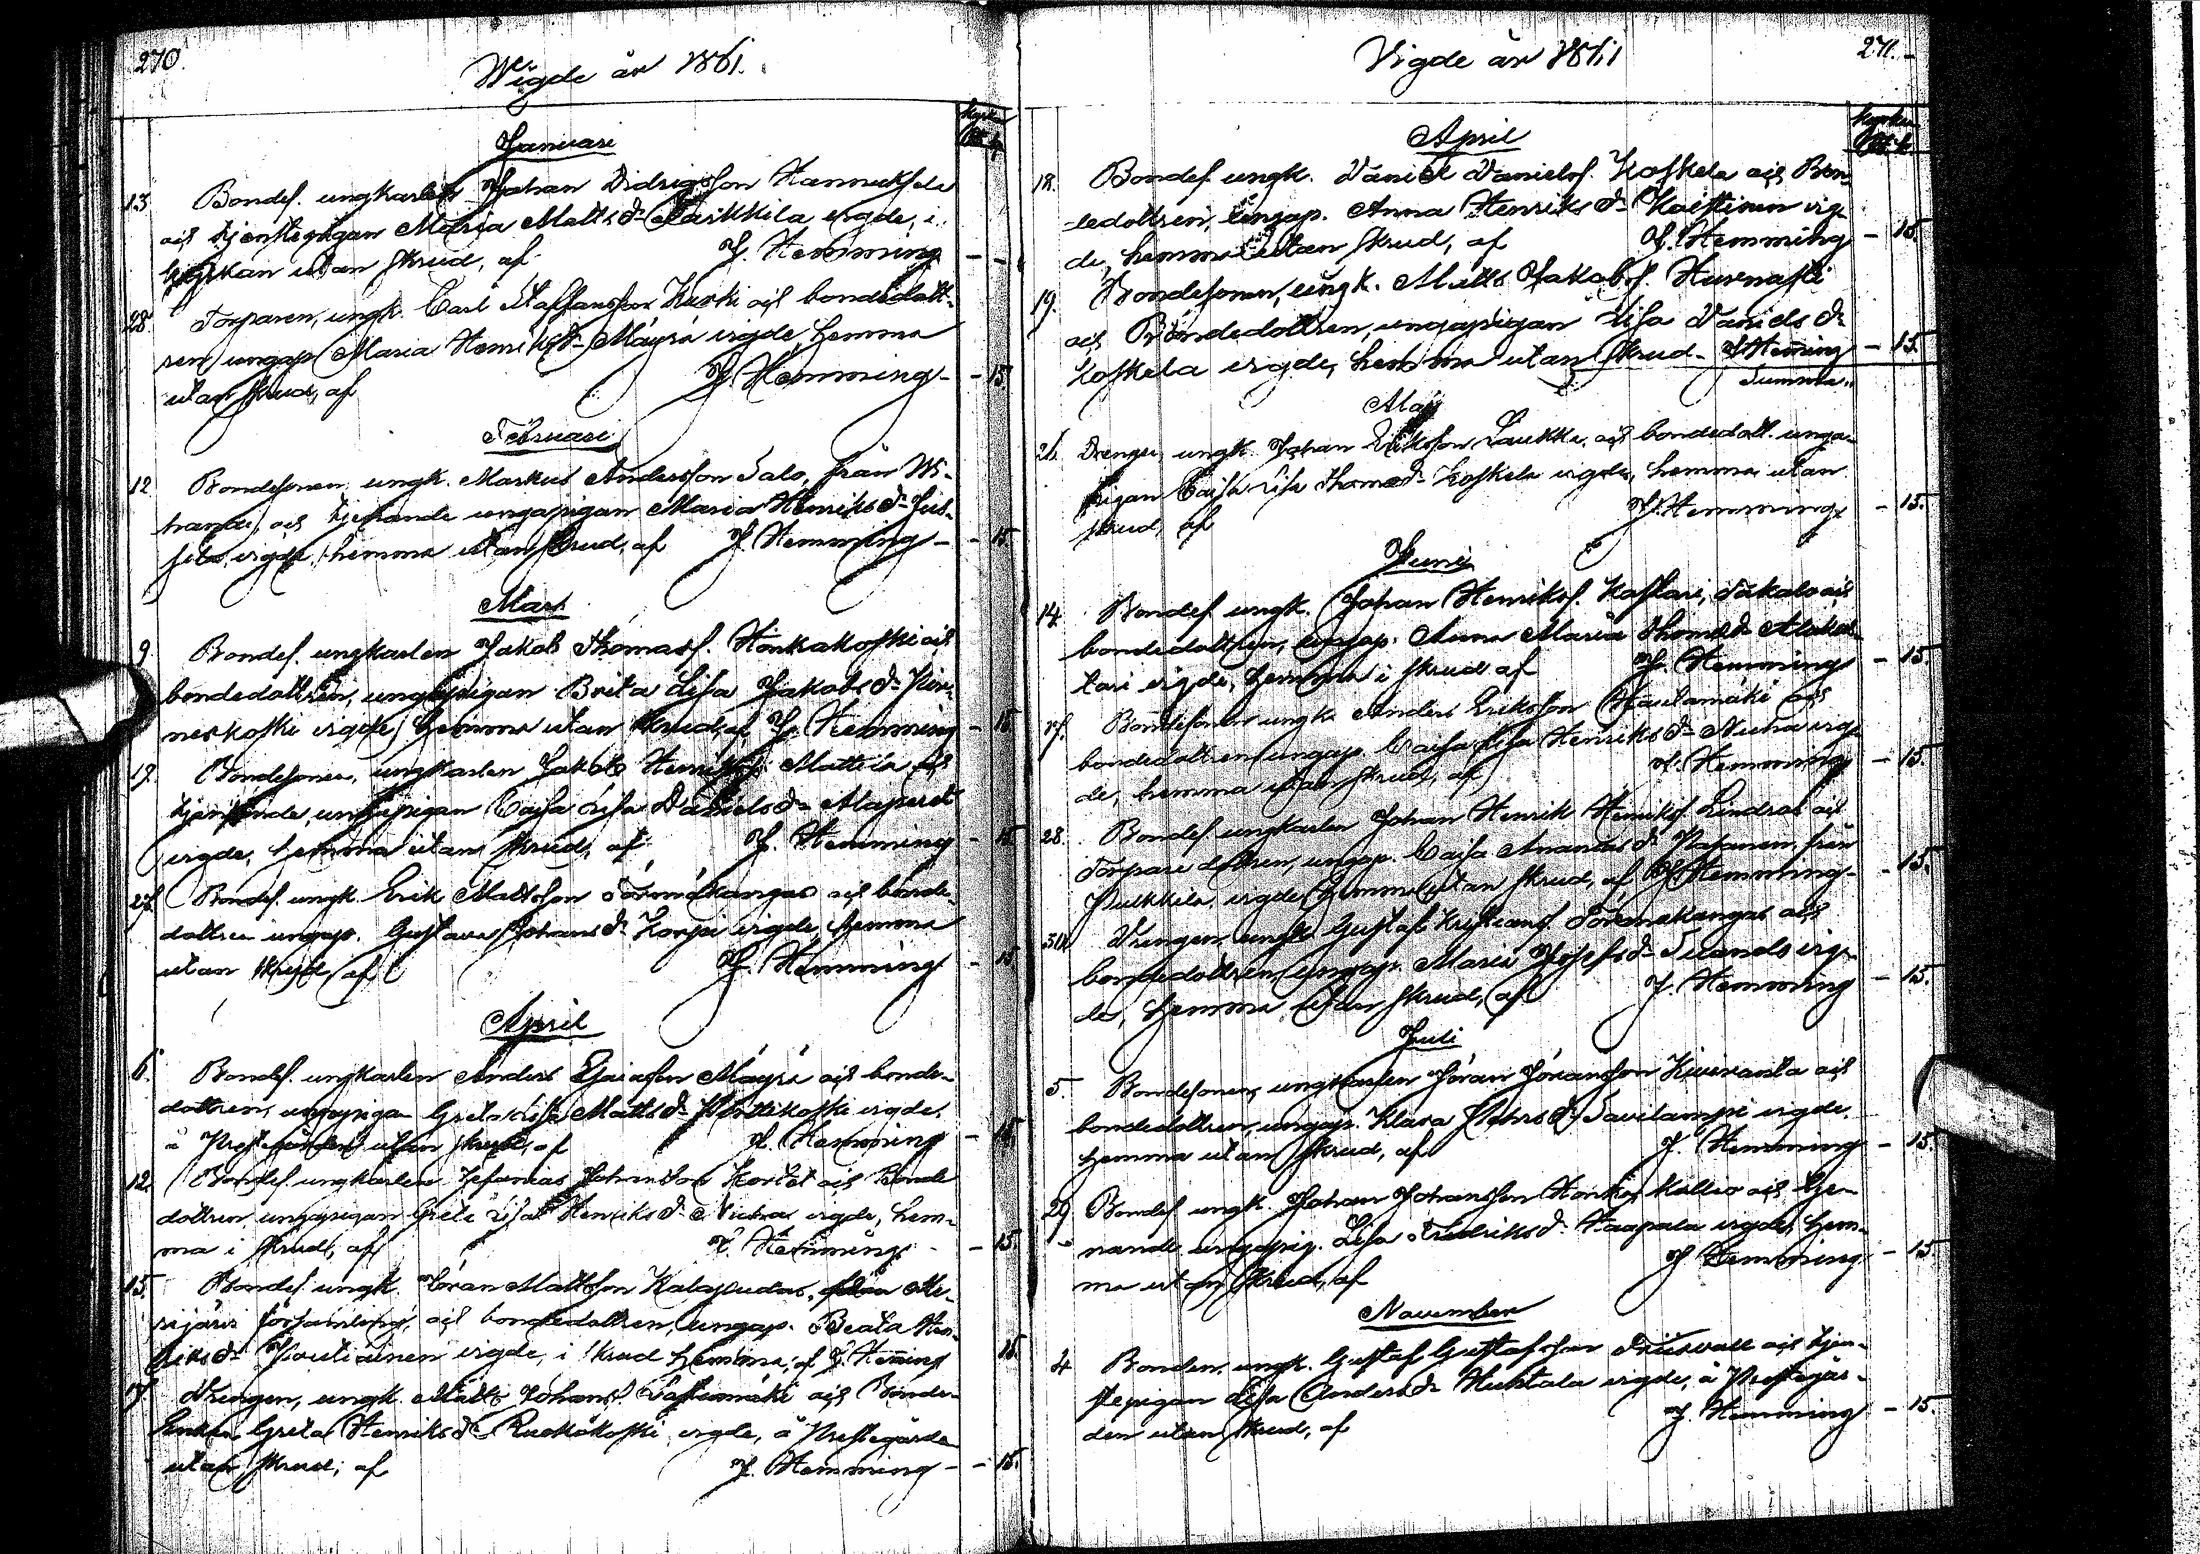 270.
Wigde år 1861.
Kyrkan
Januari
13 Bondes. ungkarlen Johan Didrigsson Hannuksela
och tjenstepigan Maria Matts dr Larikkila vigde, i
kyrkan utan skrud, af J. Hemming - -
28 Torparen, ungk. Carl Staffansson Kurki och bondedott-
ren, ungap. Maria Henriks dr Mäyrä vigde, hemma
utan skrud, af J. Hemming - - 15.
Februari
12 Bondesonen, ungk. Markus Andersson Salo, från Wi-
hande, och tjenande ungapigan Maria Henriks dr Jus-
sila vigde, hemma utan skrud, af J. Hemming - - 15
Mars
9 Bondes. ungkarlen Jakob Thomass. Honkakoski och
bondedottren, ungapigan Brita Lisa Jakobs dr
neskoski vigde, hemma utan skrud, af J. Hemming - 15
19. Bondesonen, ungkarlen Jakob Henrikss. Mattila och
tjenande, ungapigan Caisa Lisa Daniels dr
vigde, hemma utan skrud, af J. Hemming - 15
27. Bondes. ungk. Erik Mattsson Törmäkangas och bonde-
dottren ungap. Gustava Johans dr Korpi vigde, hemma
utan skrud, af J. Hemming - 15
April
6. Bondes. ungkarlen Anders Esaiasson Mäyrä och bonde-
dottren, ungapigan Greta Lisa Matts dr Penttikoski vigde,
å Prestgården utan skrud, af J. Hemming - 15.
12. Bondes. ungkarlen Zefanias Johansson Kortet och Bonde
dottren ungapigan Greta Lisa Henriks dr Niska vigde, hem-
ma i skrud, af J. Hemming - 15.
15. Bondes. ungk. Göran Mattsson Kalapudas, från Me-
rijärvi församling, och bondedottren, ungap. Beata Hen-
riks dr Pautiainen vigde, i skrud hemma, af J. Heming 15.
17. Drengen, ungk. Matts Johans. och Bonde-
Enkan Greta Henriks dr Ruokokoski vigde, å Prestgården
utan skrud, af J. Hemming - - 15.
271.
Vigde år 1861
Kyrkan
April
18. Bondes. ungk. Daniel Daniels. Koskela och Bon-
dedottren, ungap. Anna Henriks dr vig-
de, hemma utan skrud, af J. Hemming - 15.
19. Bondesonen, ungk. Matts Jakobs. Hurnasti
och Bondedottren, ungapigan Lisa Daniels dr
Koskela vigde, hemma utan skrud - J. Heming - 15
Summa
Maj
26. Drengen, ungk. Johan Eriksson Laukka, och bondedott. unga-
pigan Caisa Lisa Thomas dr Koskela vigde, hemma utan
skrud, af J. Hemming - 15.
Juni
14. Bondes. ungk. Johan Henrikss. Kastari, och
bondedottren, ungap. Anna Maria Thomas dr Alakas-
tari vigde, hemma i skrud af J. Hemming - 15.
17. Bondesonen ungk. Anders Eriksson Hautamäki och
bondedottren ungap. Caisa Lisa Henriks dr Niska vig-
de, hemma utan skrud, af J. Hemming - 15.
28. Bondes. ungkarlen Johan Henrik Henrikss. Lindral och
Torparedottren, ungap. Caisa Ananias dr från
Pulkkila vigde hemma utan skrud, af J. Hemming - 15.
30. Drengen, ungk. Gustaf Kristians. Törmäkangas och
bondedottren, ungap. Maria Josefs dr vig-
de, hemma utan skrud, af J. Hemming - 15.
Juli
5. Bondesonen, ungkarlen Göran Göransson Kiviranta och
bondedottren, ungap. Klara Petters dr Savilampi vigde,
hemma utan skrud, af J. Hemming - 15.
29 Bondes. ungk. Johan Johansson och tje-
nande ungapig. Lisa Fredriks dr Haapala vigde, hem-
ma utan skrud, af J. Hemming - 15.
November
4 Bonden, ungk. Gustaf Gustafsson och tjen-
stepigan Lisa Anders dr Huhtala vigde, å Prestegår-
den utan skrud, af J. Hemming - 15.